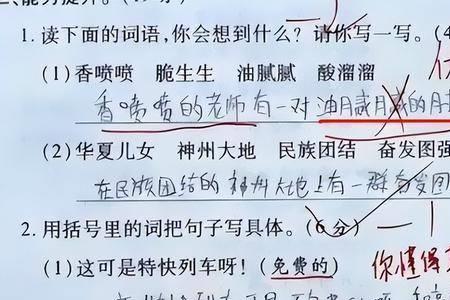 1. 读下面的词语,你会想到什么? 请你写一写。(4
(1) 香喷喷 脆生生 油腻腻 酸溜溜
香喷喷的老师有一对油月咸月咸的月
(2) 华夏儿女 神州大地 民族团结 奋发图强
在民族团结的神州大地上有一群奋发图
2. 用括号里的词把句子写具体。(6分) — 1
(1) 这可是特快列车呀! (免费的) 你懂得